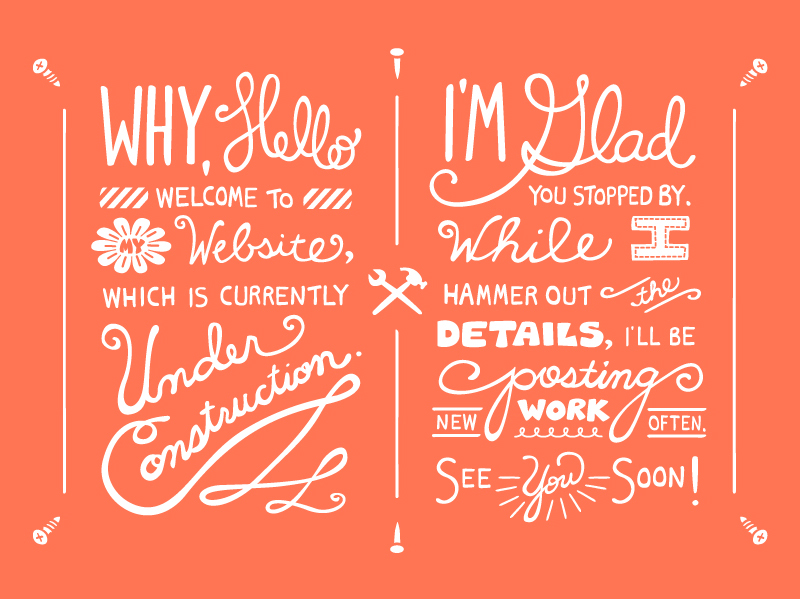 WHY, Hello
WELCOME TO
MY Website,
WHICH IS CURRENTLY
Under
Construction.
I'M Glad
YOU STOPPED BY.
While I
HAMMER OUT the
DETAILS, I'LL BE
posting
NEW WORK OFTEN.
SEE You SOON!